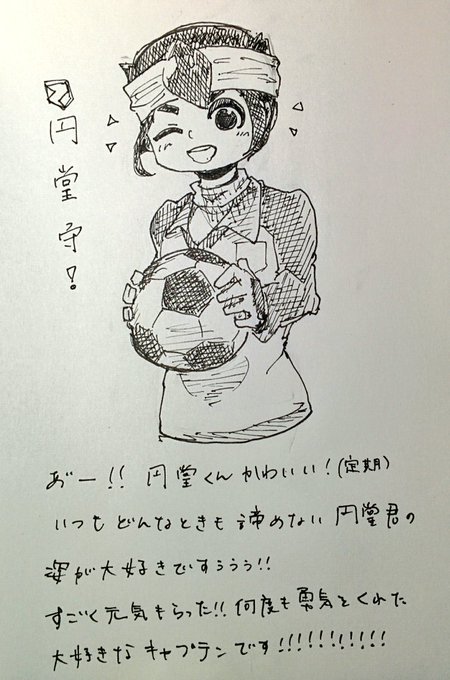 円堂守!
あ゛ー!! 円堂くんかわいい!(定期)
いつもどんなときも諦めない円堂君の
姿が大好きですぅぅぅ!!
すごく元気もらった!!何度も勇気をくれた
大好きなキャプテンです!!!!!!!!!!!